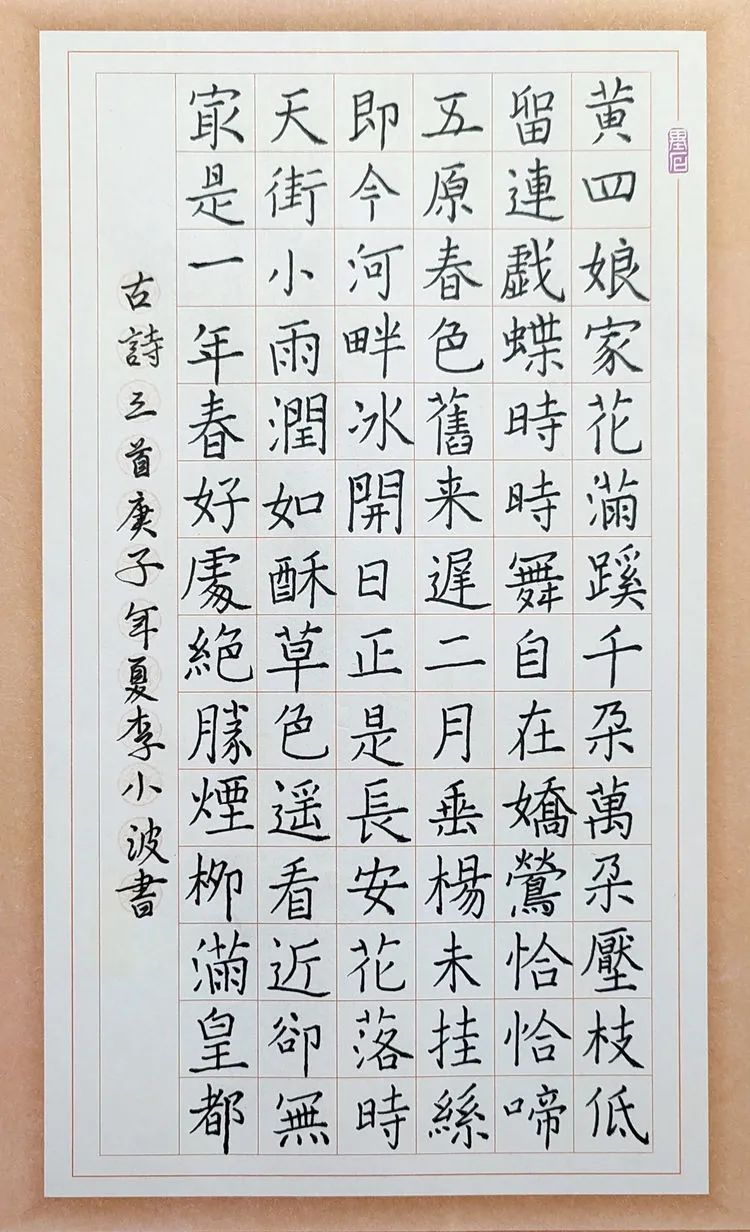 黄四娘家花滿蹊千朶萬朶壓枝低
留連戲蝶時時舞自在嬌鶯恰恰啼
五原春色舊来遲二月垂楊未挂絲
即今河畔冰開日正是長安花落時
天街小雨潤如酥草色遥看近卻無
寂是一年春好處絶勝煙柳滿皇都
古詩三首庚子年夏李小波書